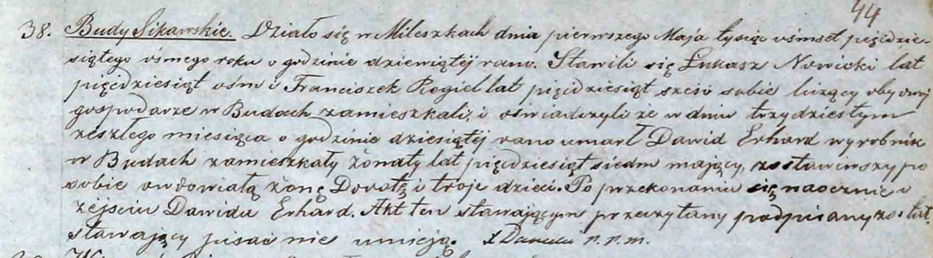 44
38. Budy Sikawskie. Działo się w Mileszkach dnia pierwszego Maja tysiąc ośmset pięćdzie-
siątego ósmego roku o godzinie dziewiątej rano. Stawili się Łukasz Nowicki lat
pięćdziesiąt ośm i Franciszek Rogiel lat pięćdziesiąt sześć sobie liczący obydwaj
gospodarze w Budach zamieszkali, i oświadczyli że w dniu trzydziestym
zeszłego miesiąca o godzinie dziesiątej rano umarł Dawid Erhard wyrobnik
w Budach zamieszkały żonaty lat pięćdziesiąt siedm mający, zostawiwszy po
sobie owdowiałą żonę Dorotę i troje dzieci. Po przekonaniu się naocznie o
zejściu Dawida Erhard. Akt ten stawającym przeczytany podpisany został.
stawający pisać nie umieją.